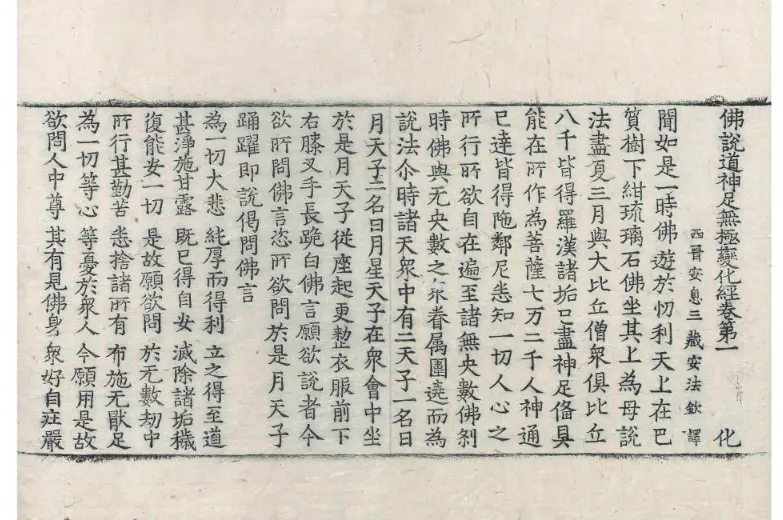 佛說道神足無極變化經卷第一　化
西晉安息三藏安法欽譯
聞如是一時佛遊於忉利天上在巴
質樹下紺琉璃石佛坐其上為母說
法盡夏三月與大比丘僧衆俱比丘
八千皆得羅漢諸垢已盡神足俻具
能在所作為菩薩七万二千人神通
已達皆得陁鄰尼悉知一切人心之
所行所欲自在遍至諸無央數佛剎
時佛與無央數之衆眷属圍遶而為
說法尒時諸天衆中有二天子一名曰
月天子二名曰月星天子在衆會中坐
於是月天子從座起更整衣服前下
右膝叉手長跪白佛言願欲說者今
欲所問佛言恣所欲問於是月天子
踊躍即說偈問佛言
為一切大悲　純厚而得利　立之得至道
甚淨施甘露　既已得自安　滅除諸垢穢
復能安一切　是故願欲問　於無數劫中
所行甚勤苦　悉捨諸所有　布施無猒足
為一切等心　等憂於衆人　今願用是故
欲問人中尊　其有見佛身　衆好自莊嚴